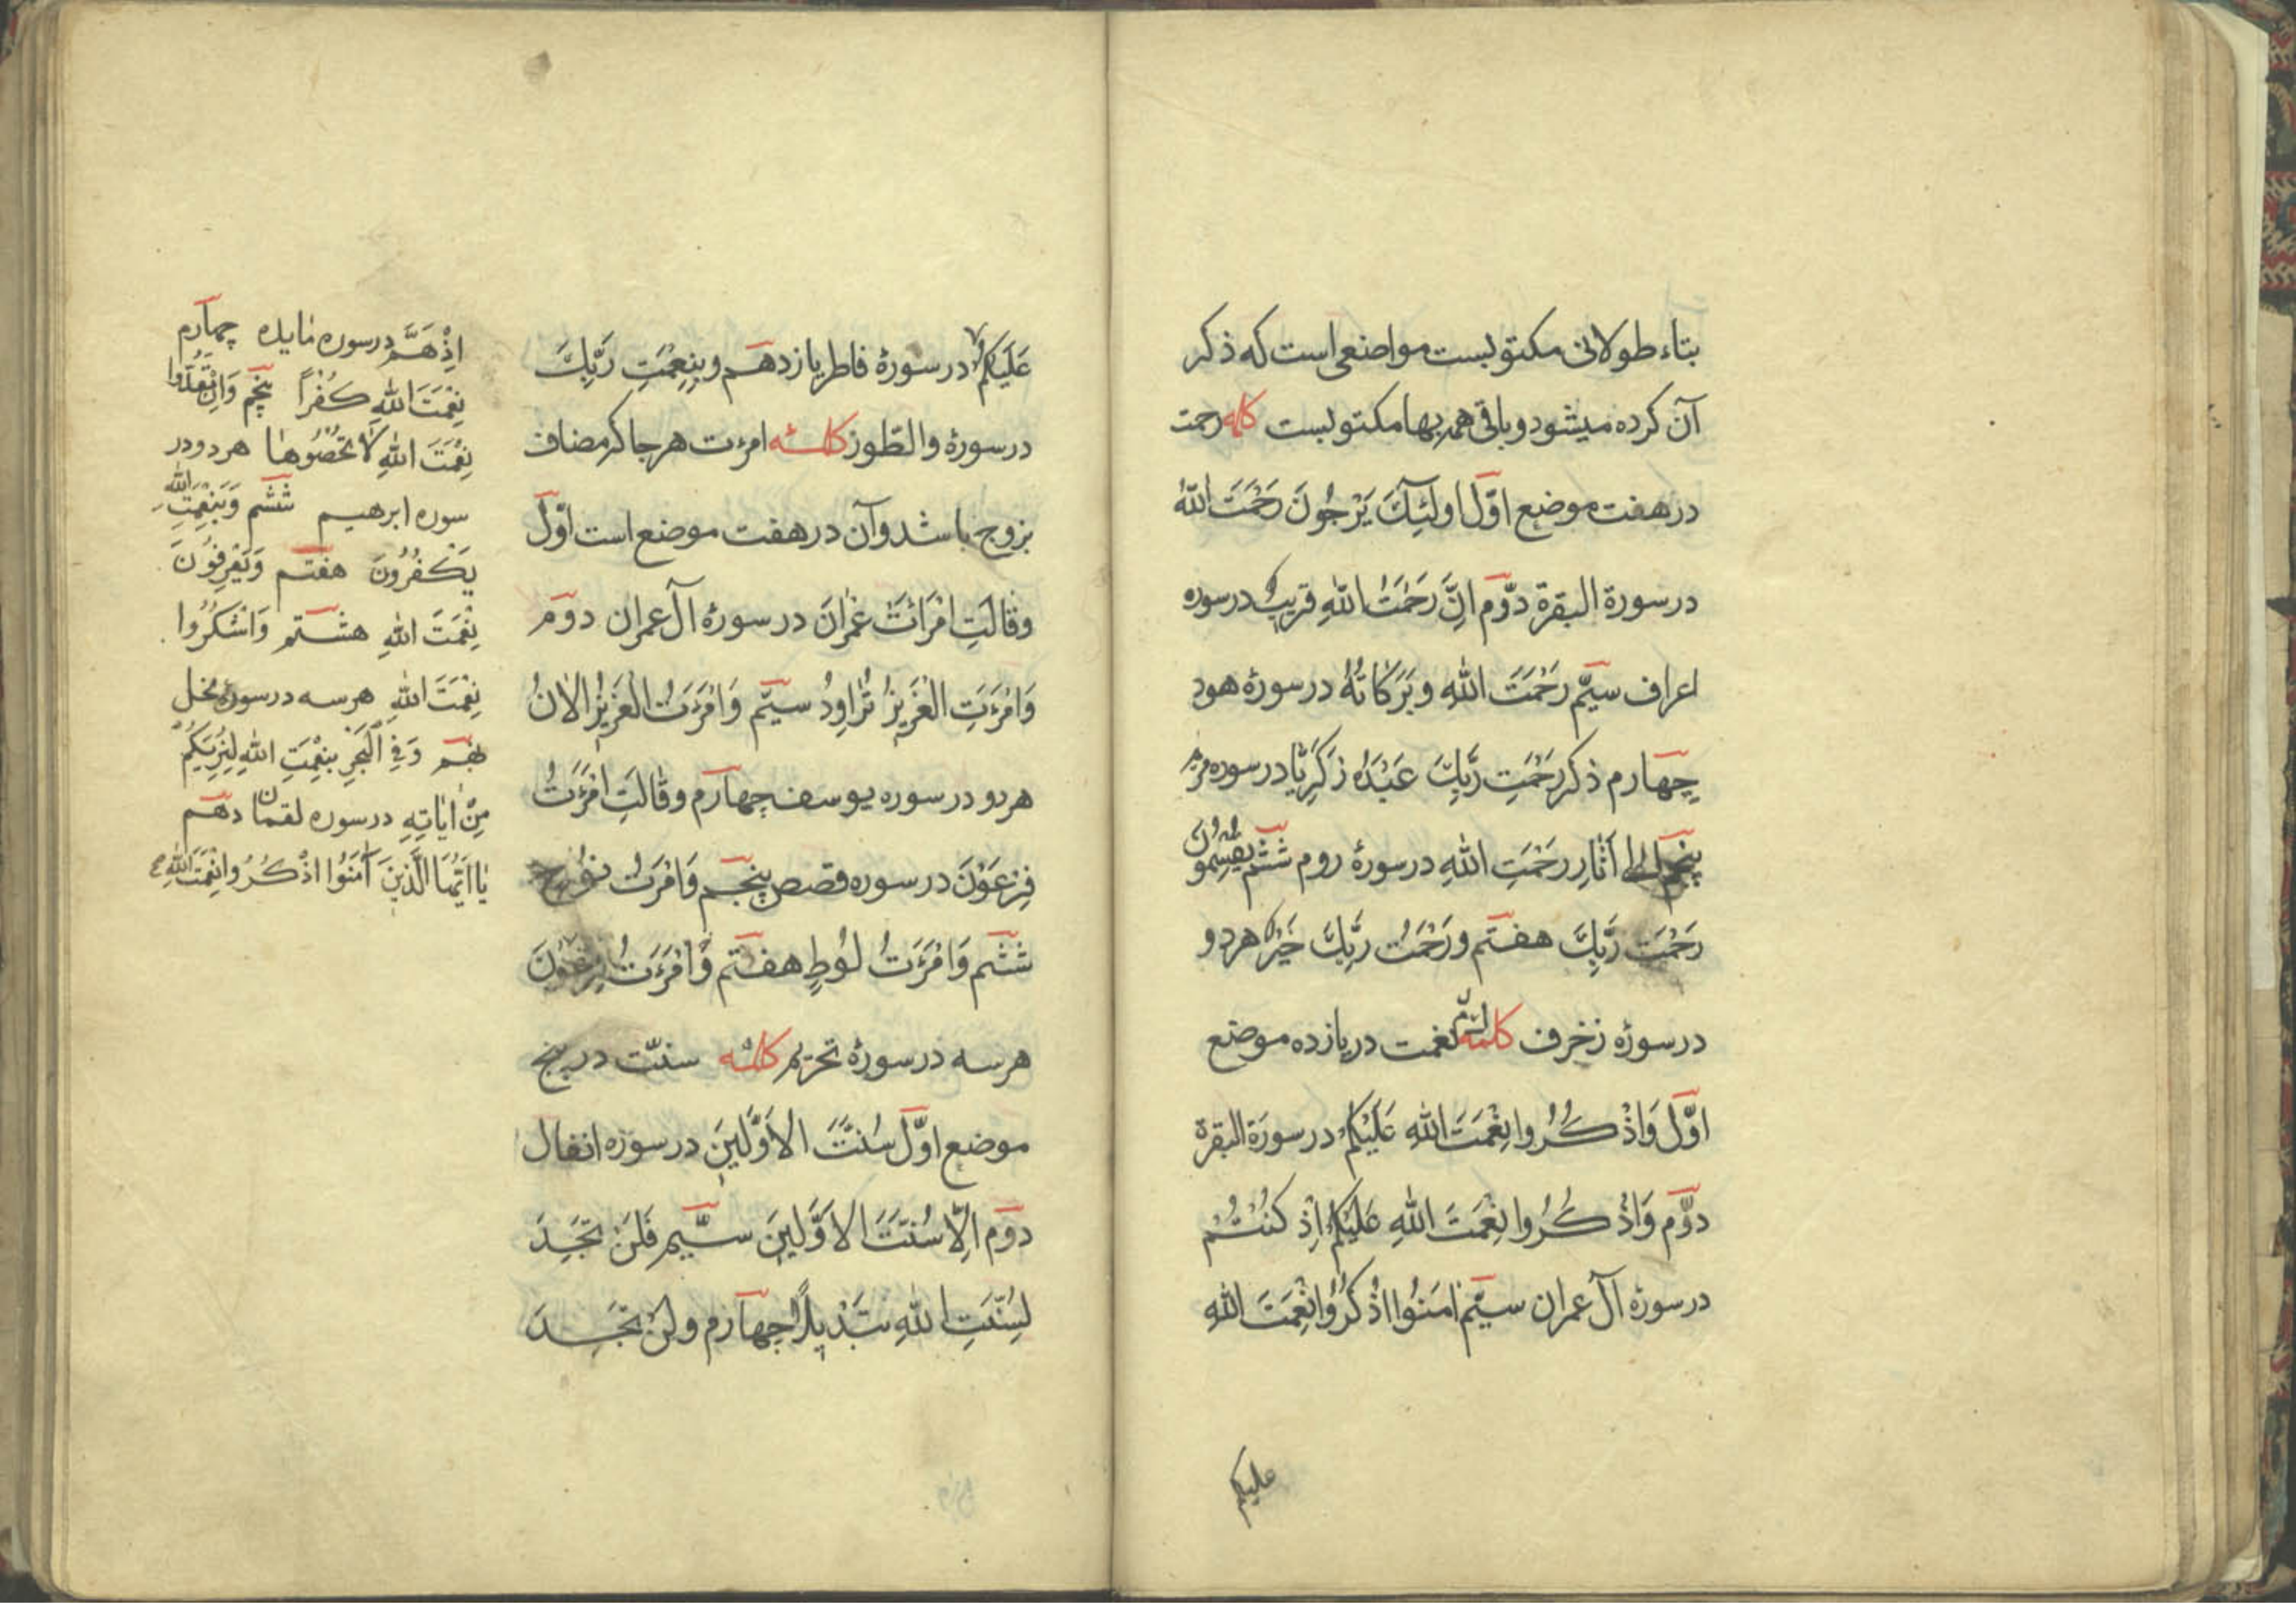 بتاء طولانی مکتوبست مواضعی است که ذکر
آن کرده میشود و باقی همه بها مکتوبست کلمه رحمت
در هفت موضع اوّل اولئِكَ يَرْجُونَ رَحْمَتَ اللّٰهِ
در سورة البقرة دوّم اِنَّ رَحْمَتَ اللّٰهِ قريبٌ در سوره
اعراف سيّم رَحْمَتَ اللّٰهِ وبَرَكاتُهُ در سورهٔ هود
چهارم ذکر رَحْمَتِ رَبِّكَ عَبْدَهُ زَكَرِيّا در سوره مريم
پنجم الی اٰثارِ رَحْمَتِ اللّٰهِ در سورهٔ روم ششم يَقْسِمُونَ
رَحْمَتَ رَبِّكَ هفتم ورَحْمَتُ رَبِّكَ خَيْرٌ هر دو
در سورهٔ زخرف کلمه نعمت در يازده موضع
اوّل وَاذْكُرُوا نِعْمَتَ اللّٰهِ عَلَيْكُمْ در سورَة البقرة
دوّم وَاذْكُرُوا نِعْمَتَ اللّٰهِ عَلَيْكُمْ اِذْ كُنْتُمْ
در سورهٔ آل عمران سيّم اٰمَنُوا اذْكُرُوا نِعْمَتَ اللّٰهِ
عليكم
عَلَيْكُمْ در سورهٔ فاطر يازدهم وبِنِعْمَتِ رَبِّكَ
در سورهٔ والطّور کلمه امرءت هر جا که مضاف
بزوج باشد و آن در هفت موضع است اوّل
وقالَتِ امْرَاَتُ عِمْرانَ در سورهٔ آل عمران دوّم
وَامْرَءَتِ الْعَزِيزِ تُراوِدُ سيّم وَامْرَءَتُ الْعَزِيزِ الْاٰنَ
هر دو در سوره يوسف چهارم وقالَتِ امْرَءَتُ
فِرْعَوْنَ در سوره قصص پنجم وَامْرَءَتَ نُوحٍ
ششم وَامْرَءَتَ لُوطٍ هفتم وَامْرَءَتَ فِرْعَوْنَ
هر سه در سورهٔ تحريم کلمه سنّت در پنج
موضع اوّل سُنَّتَ الاَوَّلينَ در سوره انفال
دوّم اِلّا سُنَّتَ الاَوَّلينَ سيّم فَلَنْ تَجِدَ
لِسُنَّتِ اللّٰهِ تَبْديلاً چهارم ولَنْ تَجِدَ
اِذْ هَمَّ در سوره مايده چهارم
نِعْمَتَ اللّٰهِ كُفْراً پنجم وَاِنْ تَعُدُّوا
نِعْمَتَ اللّٰهِ لا تُحْصُوها هر دو در
سوره ابرهيم ششم وَبِنِعْمَتِ اللّٰهِ
يَكْفُرُونَ هفتم وَيَعْرِفُونَ
نِعْمَتَ اللّٰهِ هشتم وَاشْكُرُوا
نِعْمَتَ اللّٰهِ هر سه در سوره نحل
نهم وَفِي الْبَحْرِ بِنِعْمَتِ اللّٰهِ لِيُرِيَكُمْ
مِنْ اٰياتِهِ در سوره لقمان دهم
يا اَيُّهَا الَّذينَ اٰمَنُوا اذْكُرُوا نِعْمَتَ اللّٰهِ